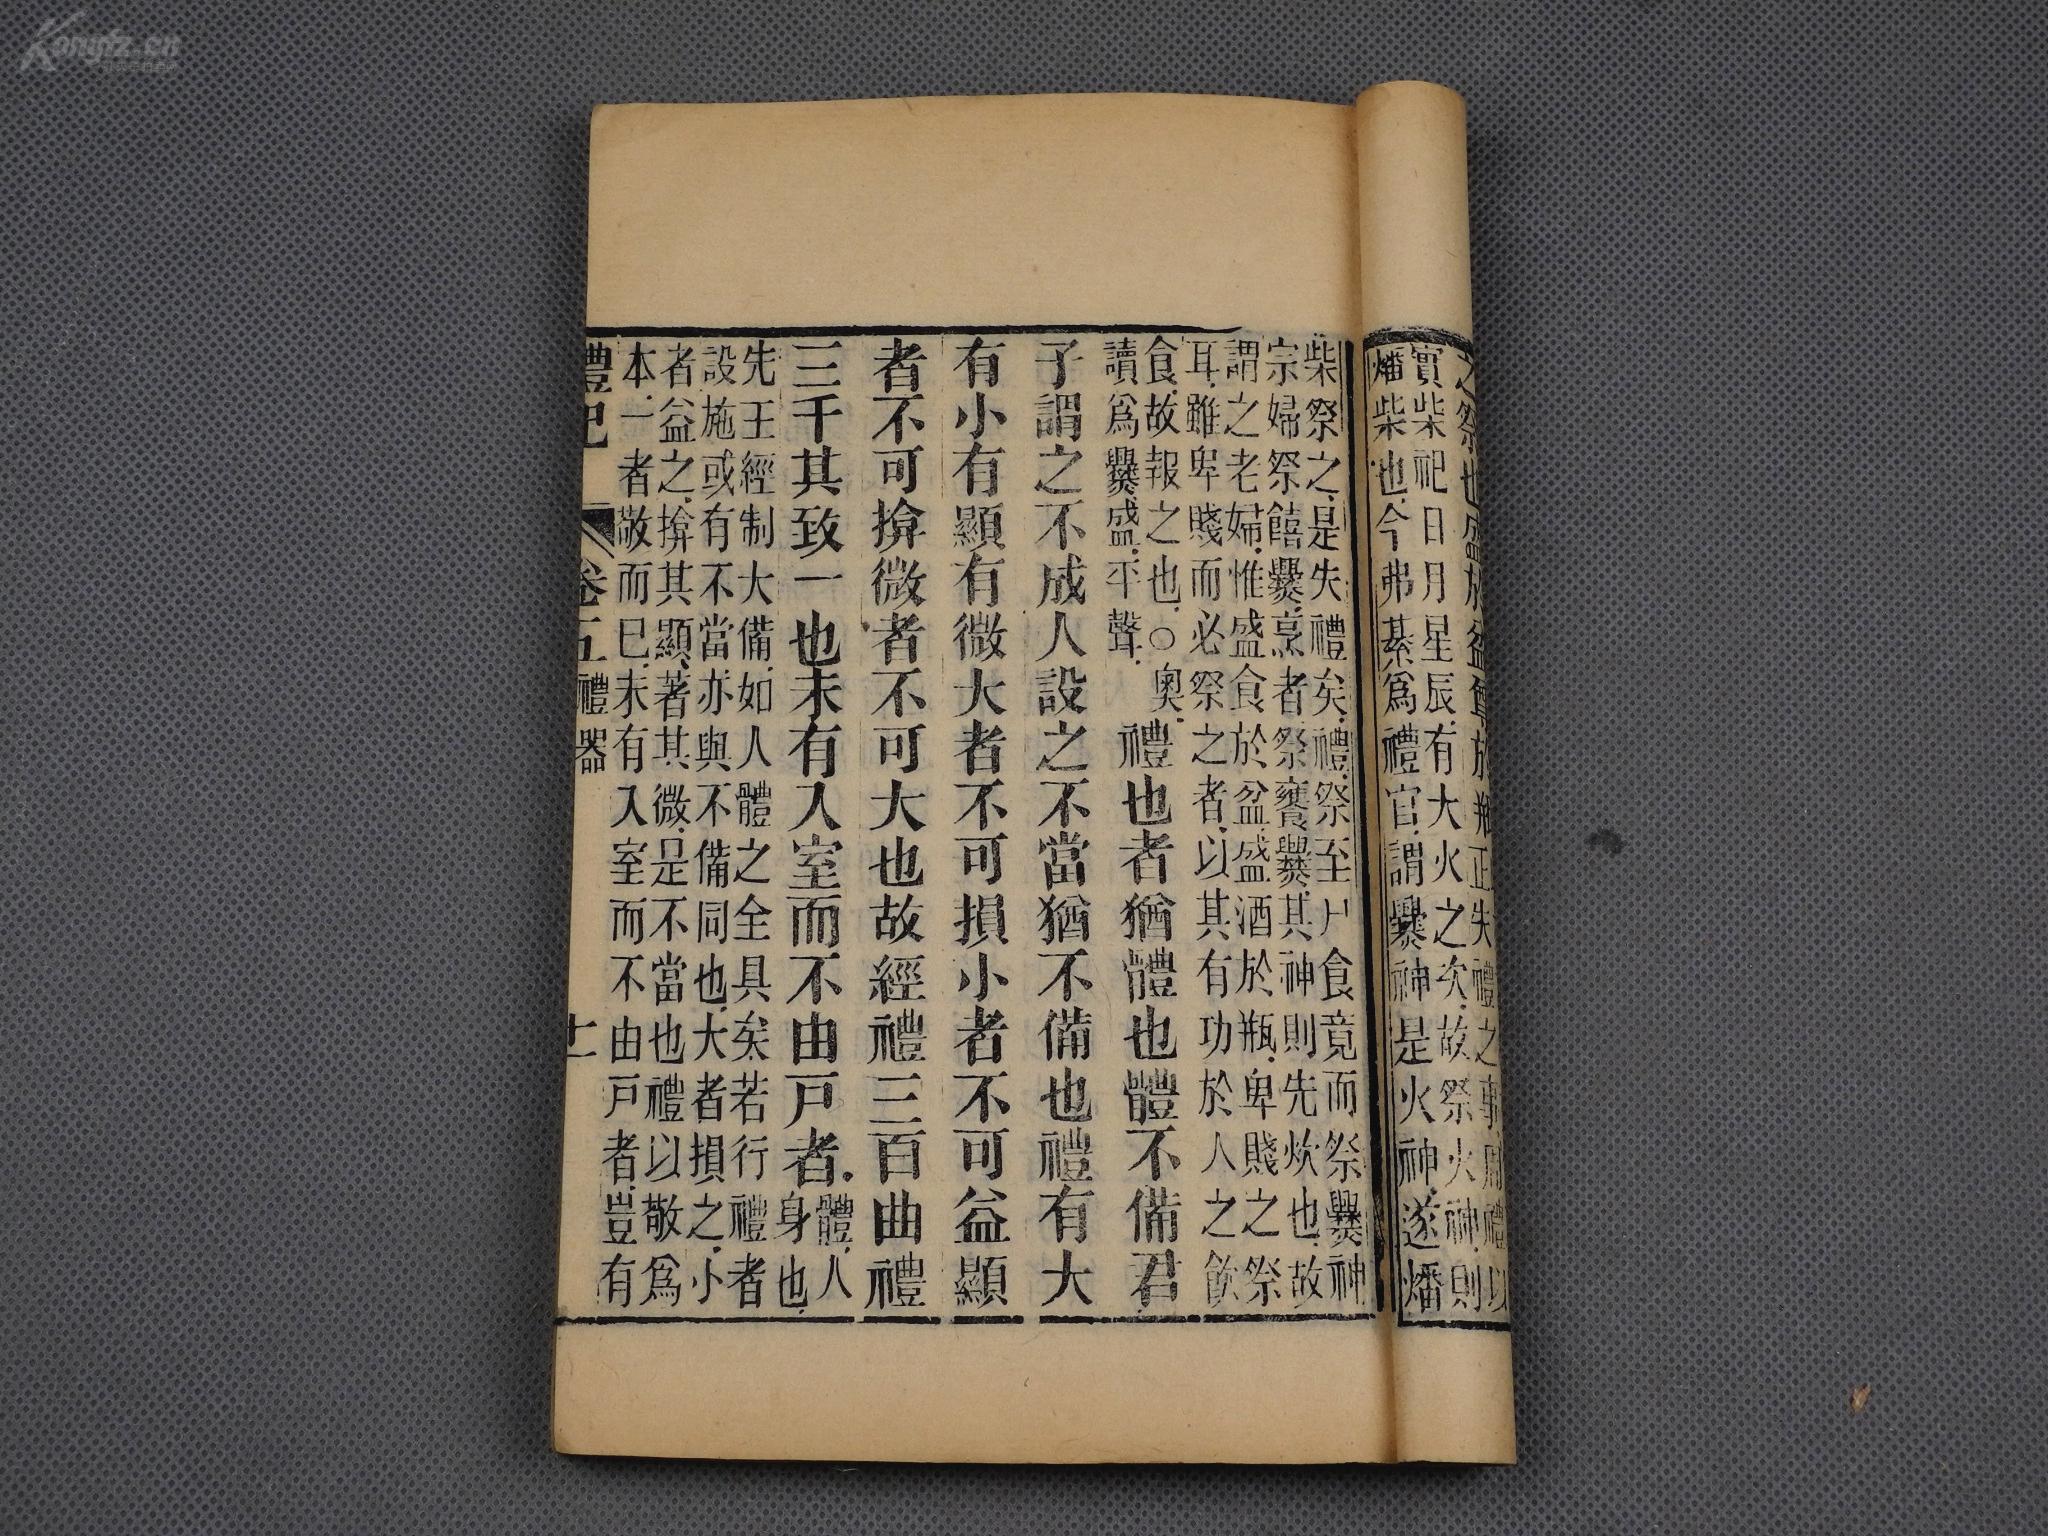 之祭也盛於盆尊於瓶正失禮之事周禮以
實柴祀日月星辰有大火之次故祭火神則
燔柴也今弗綦為禮官謂爨神是火神遂燔
柴祭之是失禮矣禮祭至尸食竟而祭爨神
宗婦祭饎爨烹者祭饔爨其神則先炊也故
謂之老婦惟盛食於盆盛酒於瓶卑賤之祭
耳雖卑賤而必祭之者以其有功於人之飲
食故報之也○奧
讀為爨盛平聲
禮也者猶體也體不備君
子謂之不成人設之不當猶不備也禮有大
有小有顯有微大者不可損小者不可益顯
者不可揜微者不可大也故經禮三百曲禮
三千其致一也未有入室而不由戶者
體人
身也
先王經制大備如人體之全具矣若行禮者
設施或有不當亦與不備同也大者損之小
者益之揜其顯著其微是不當也禮以敬為
本一者敬而已未有入室而不由戶者豈有
禮記 卷五 禮器
Kongfz.cn